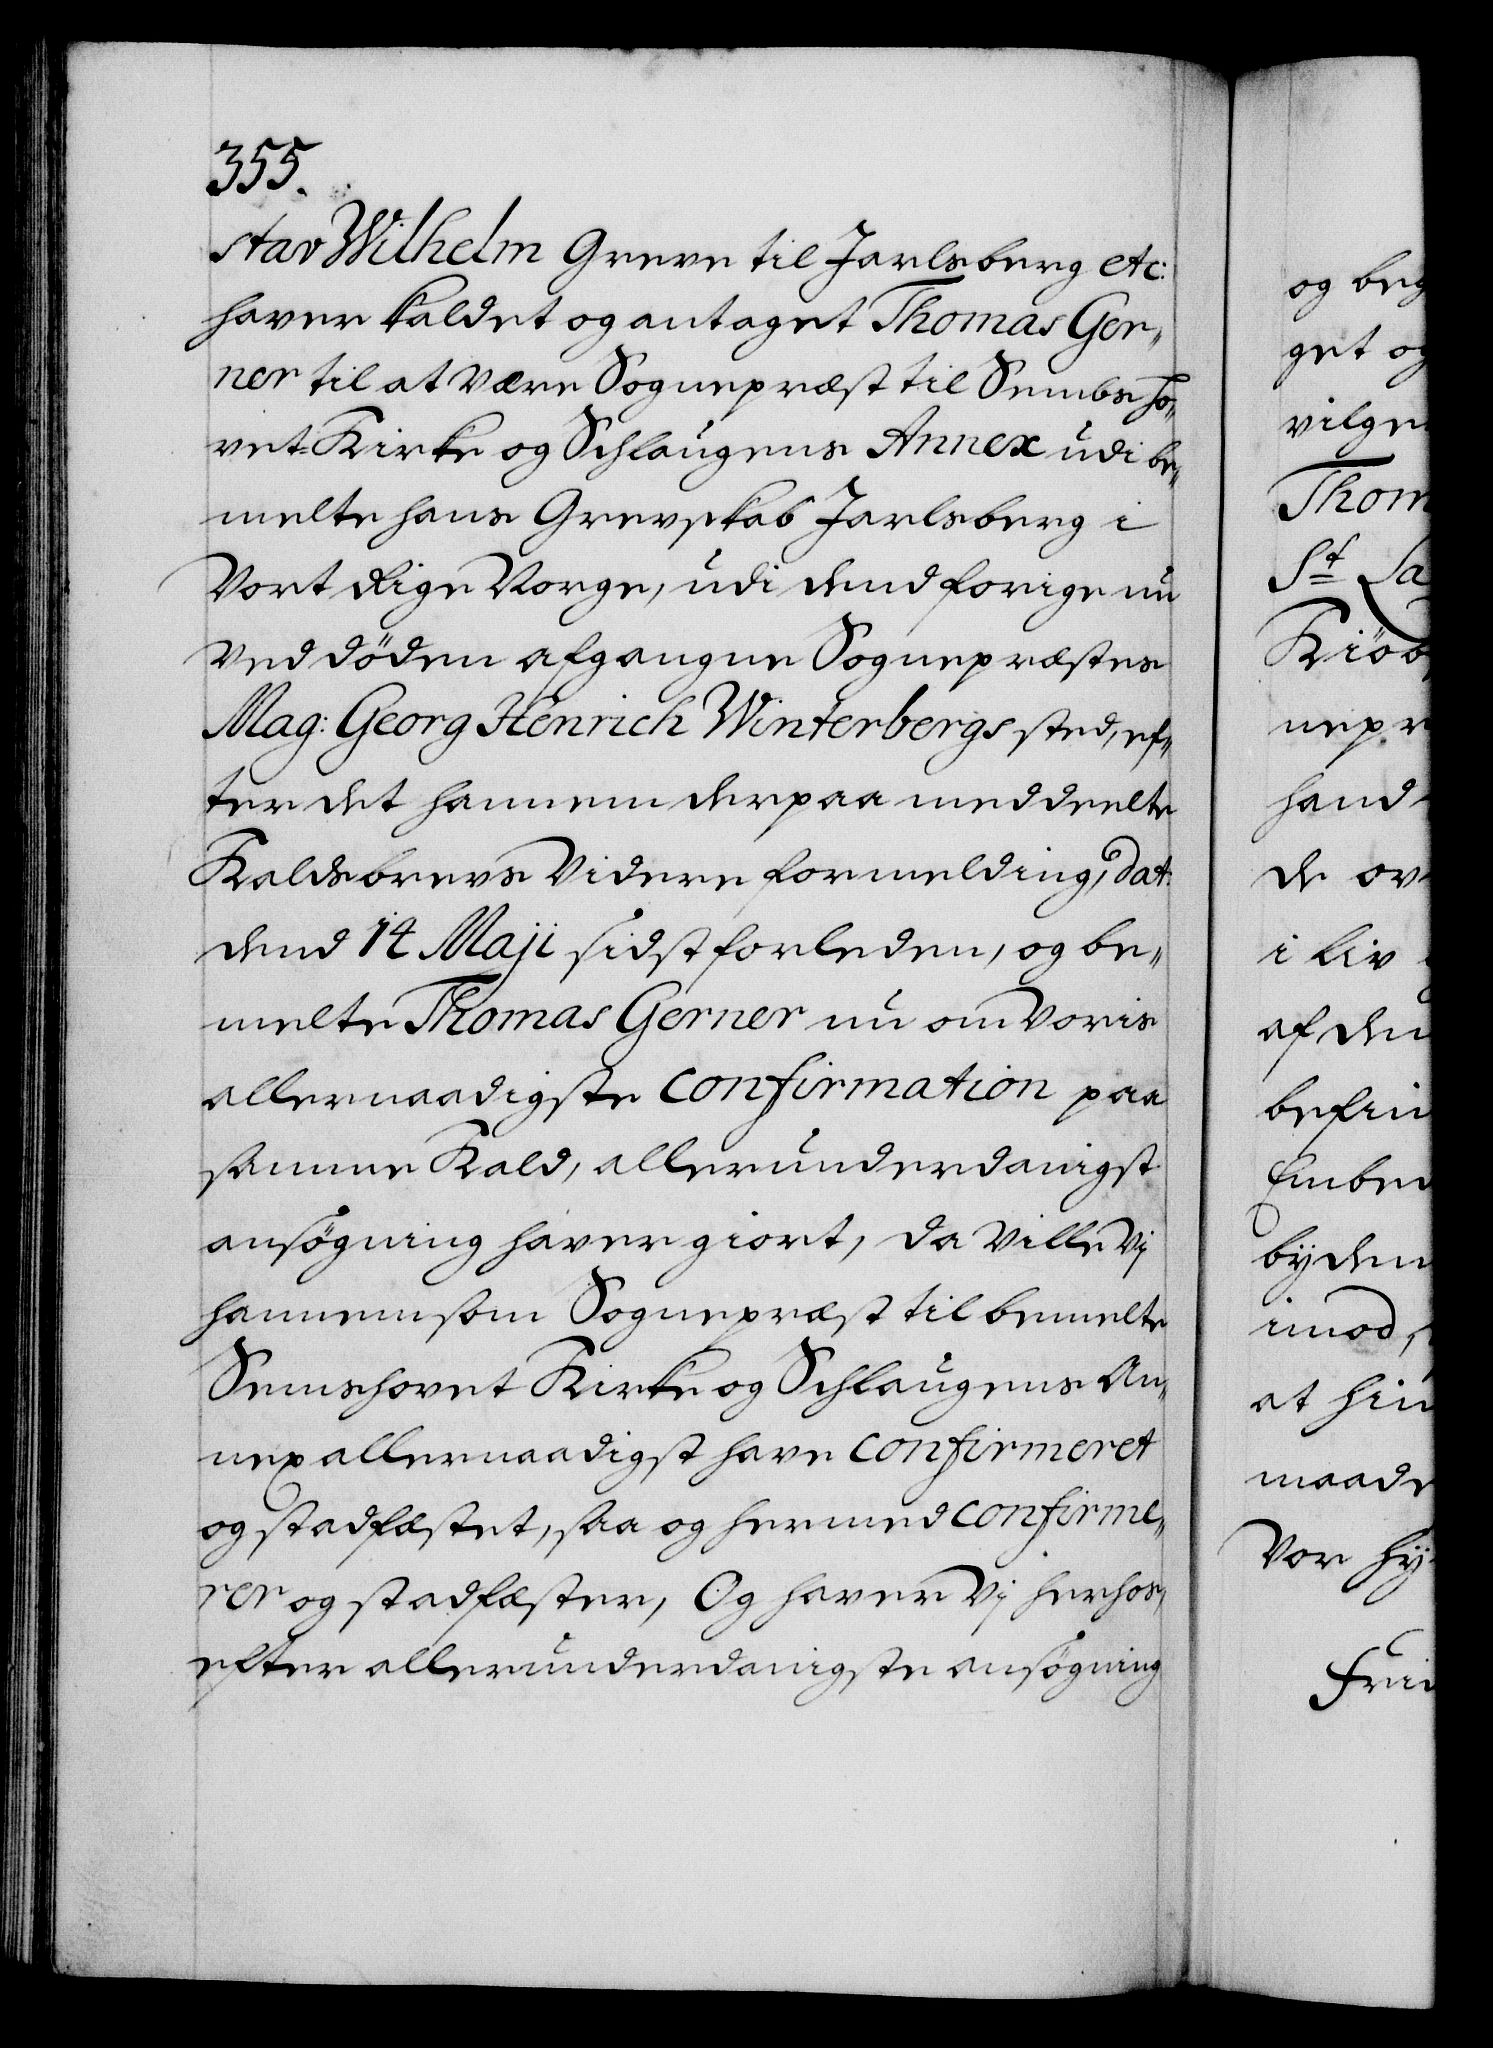 355.
stav Wilhelm Greve til Jarlsberg etc:
haver kaldet og antaget Thomas Ger„
ner til at være Sognepræst til Sembs ho„
vet-Kirke og Schlaugens Annex udi be„
melte hans Grevskab Jarlsberg i
Vort Rige Norge, udi dend forige nu
ved döden afgangne Sognepræstes
Mag: Georg Henrich Winterbergs sted, ef„
ter det hannem derpaa meddeelte
Kaldsbrevs videre formelding, dat:
dend 14 Maji sidstforleden, og be„
melte Thomas Gerner nu om Voris
allernaadigste confirmation paa
samme Kald, allerunderdanigst
ansögning haver giort, da ville Vj
hannem som Sognepræst til bemelte
Semshovet Kirke og Schlaugens An„
nex allernaadigst have confirmeret
og stadfæstet, saa og hermed confirme„
rer og stadfæster, Og haver Vj herhos,
efter allerunderdanigste ansögning
og beg
get og
vilge
Thom
St La
Kiöb
nepr
hand
de ov
i liv
af den
befin
Embed
byden
imod,
at hin
maade
Vor Hy
Frid